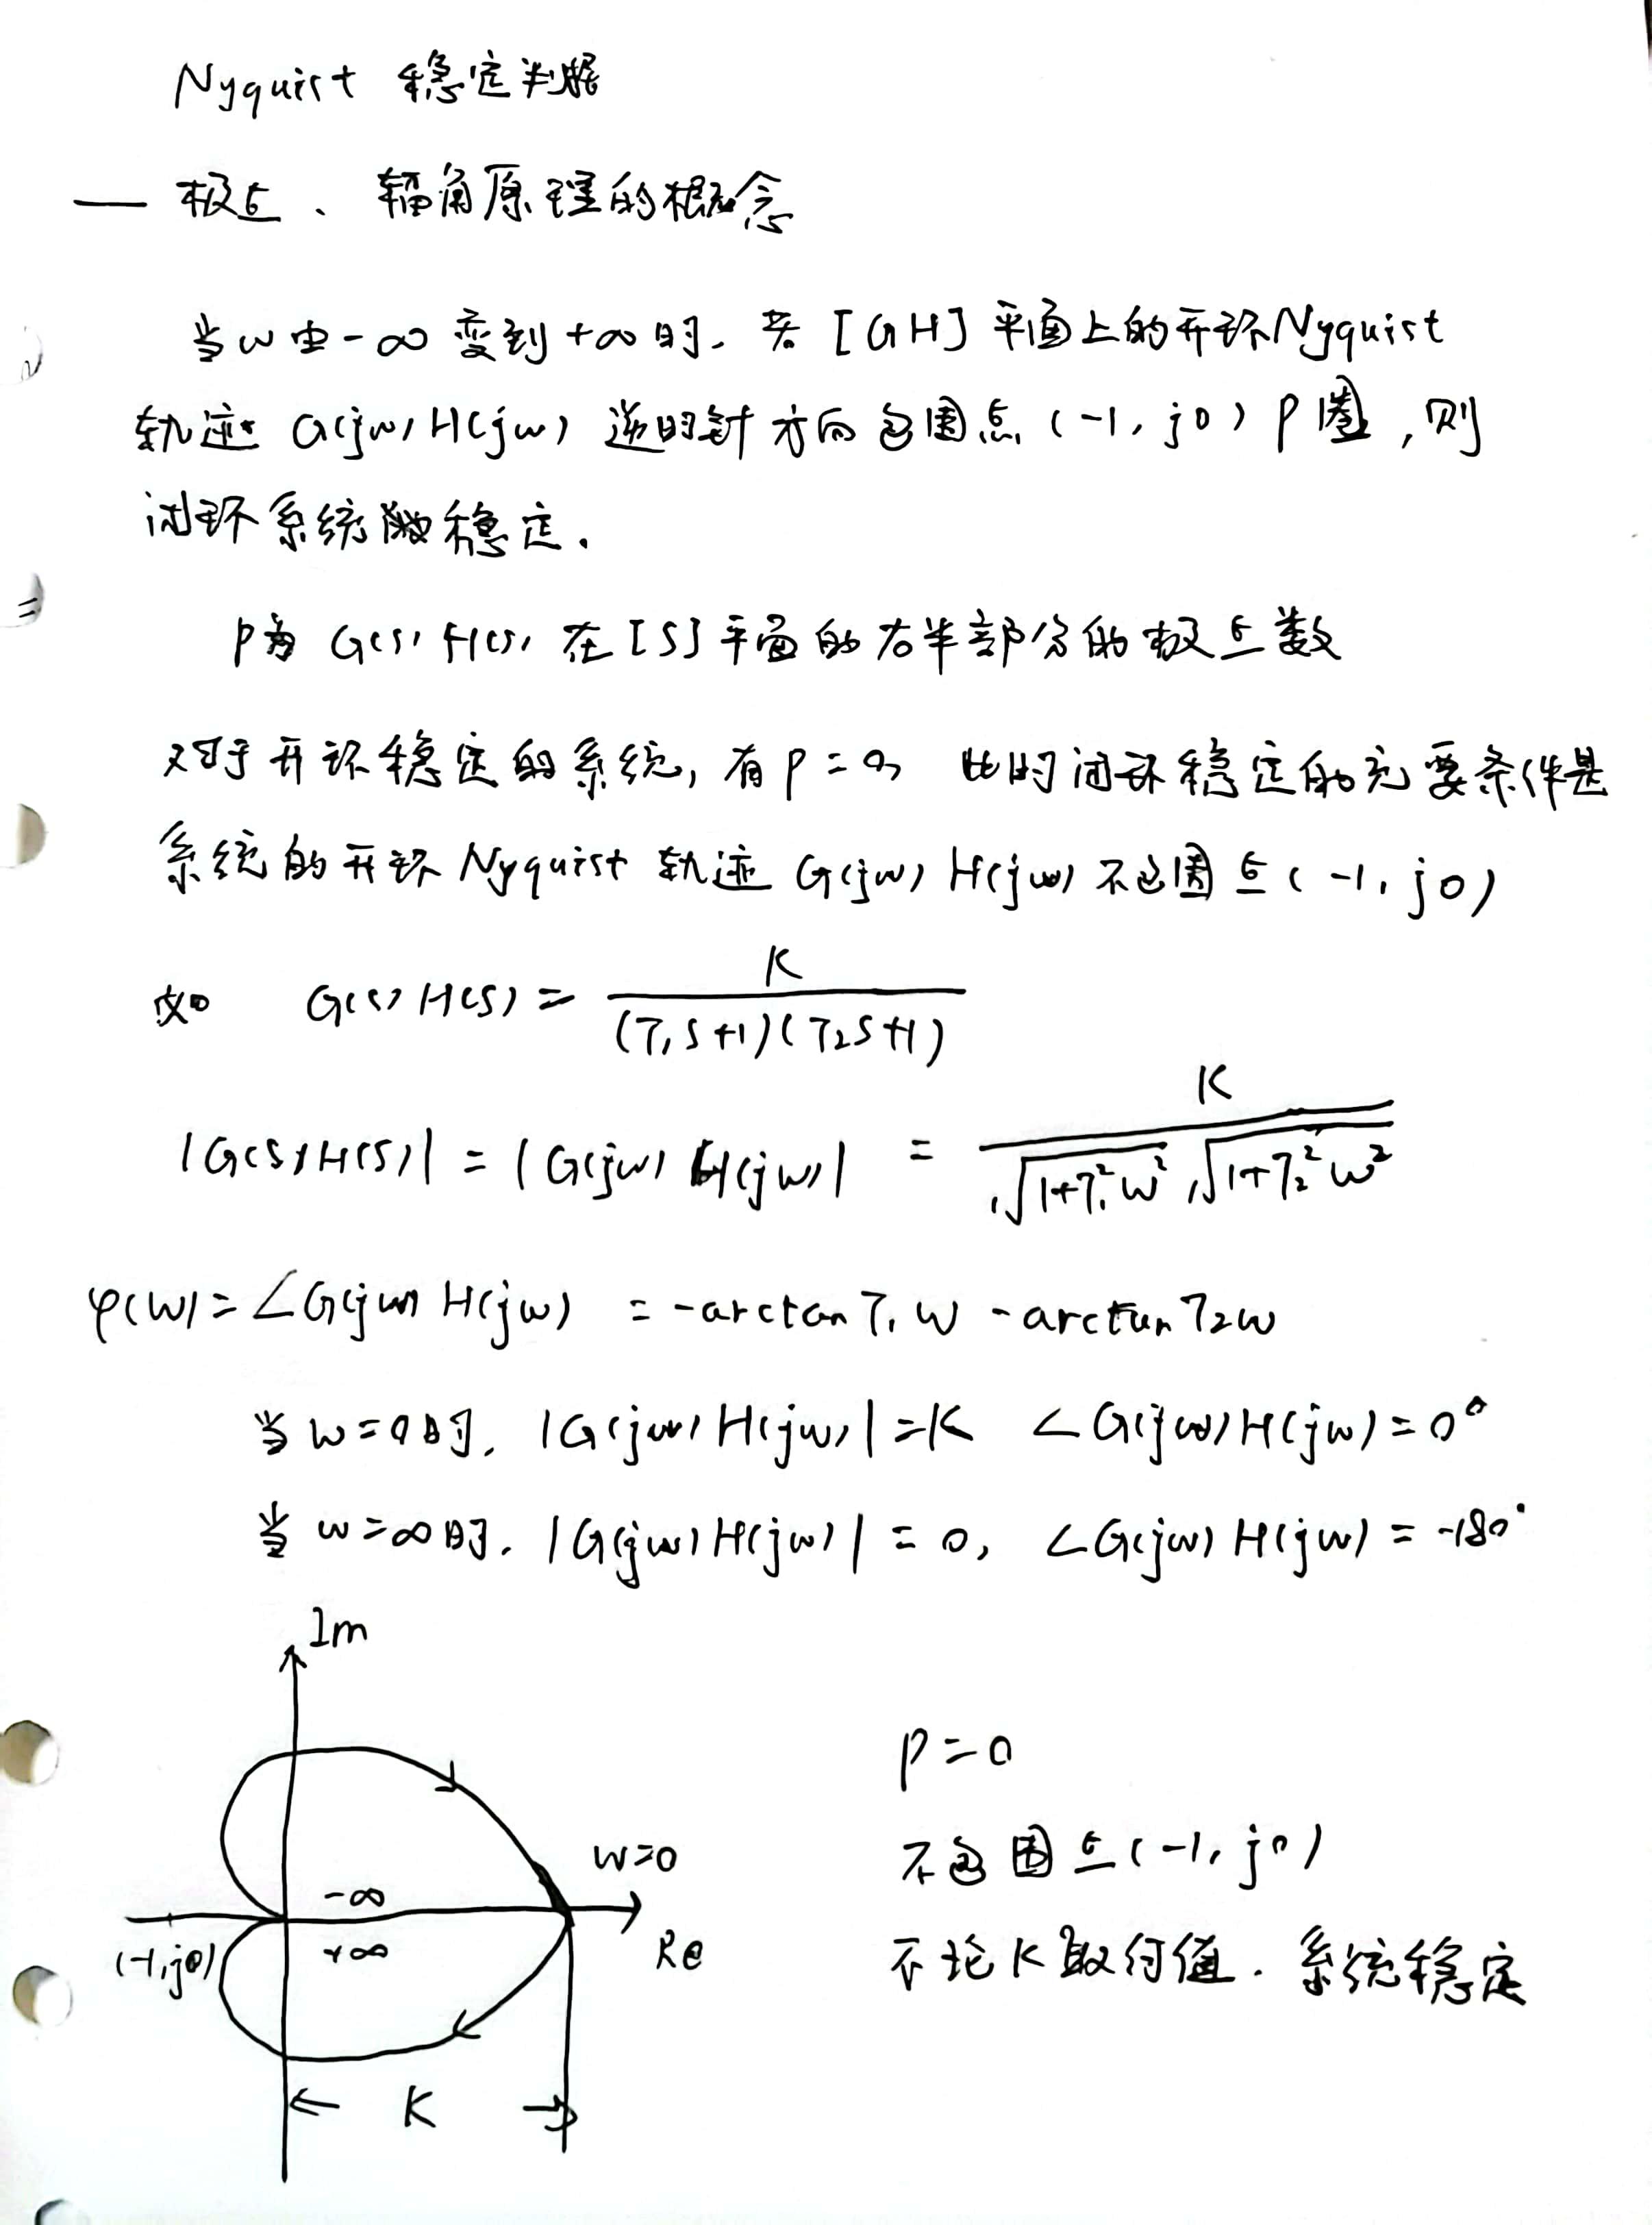 Nyquist 稳定判据
— 极点、辐角原理的概念
当ω由-∞变到+∞时，若[GH]平面上的开环Nyquist
轨迹 G(jω)H(jω) 逆时针方向包围点(-1, j0) P圈，则
闭环系统稳定.
P为 G(s)H(s) 在[S]平面的右半部分的极点数
对于开环稳定的系统，有P=0，此时闭环稳定的充要条件是
系统的开环Nyquist 轨迹 G(jω)H(jω)不包围点(-1, j0)
如 G(s)H(s) = K / (T₁S+1)(T₂S+1)
|G(s)H(s)| = |G(jω)H(jω)| = K / √1+T₁²ω² √1+T₂²ω²
φ(ω) = ∠G(jω)H(jω) = -arctan T₁ω - arctan T₂ω
当ω=0时. |G(jω)H(jω)|=K ∠G(jω)H(jω)=0°
当ω=∞时. |G(jω)H(jω)|=0, ∠G(jω)H(jω)=-180°
Im
P=0
ω=0
不包围点(-1, j0)
-∞
+∞
(-1, j0)
Re
不论K取何值. 系统稳定
K